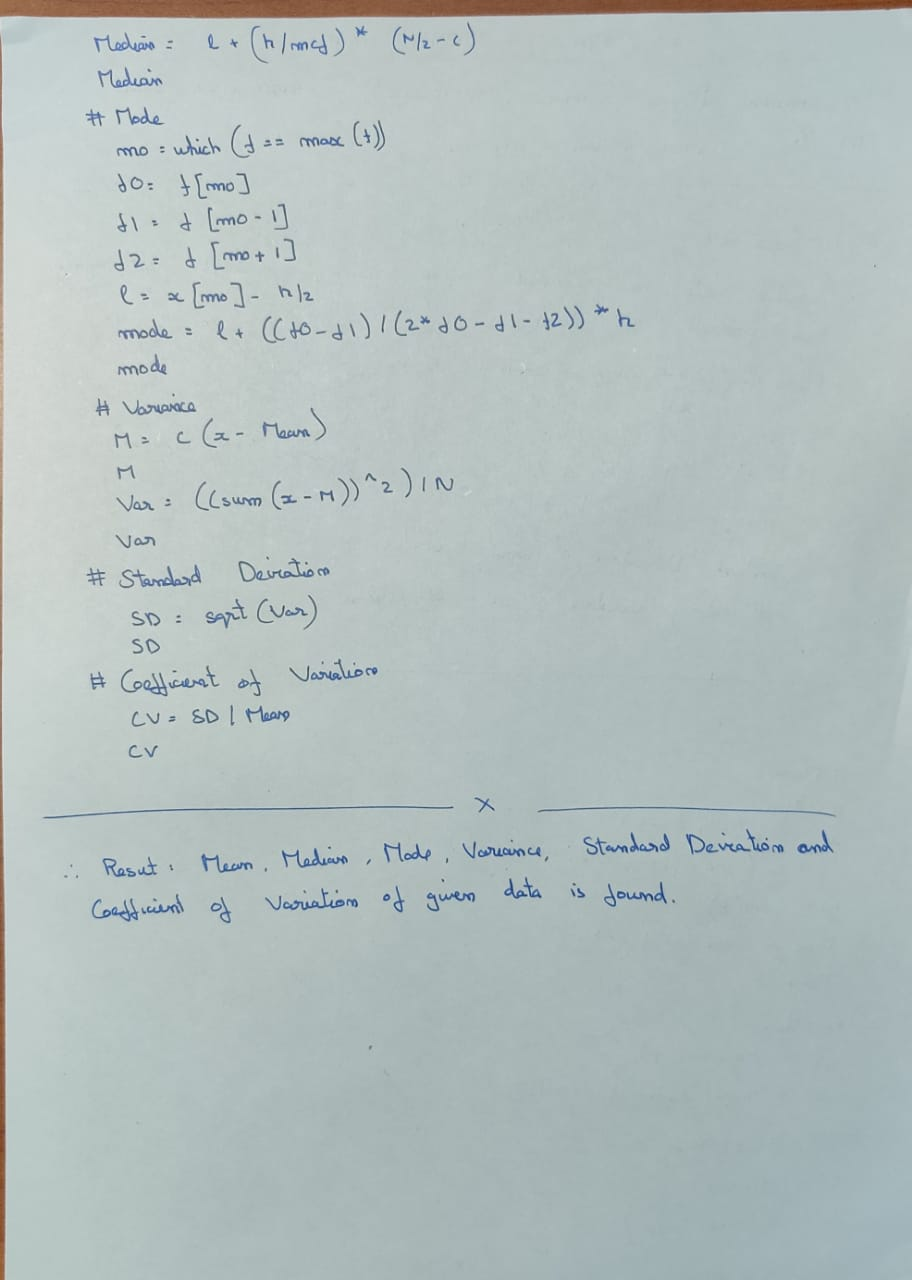 Median = l + (h/mcf) * (N/2 - c)
Median
# Mode
mo = which (f == max (f))
f0 = f[mo]
f1 = f [mo - 1]
f2 = f [mo + 1]
l = x [mo] - h/2
mode = l + ((f0 - f1) / (2* f0 - f1 - f2)) * h
mode
# Variance
M = c (x - Mean)
M
Var = ((sum (x - M))^2) / N
Var
# Standard Deviation
SD = sqrt (Var)
SD
# Coefficient of Variation
CV = SD / Mean
CV
X
∴ Resut : Mean, Median, Mode, Variance, Standard Deviation and
Coefficient of Variation of given data is found.